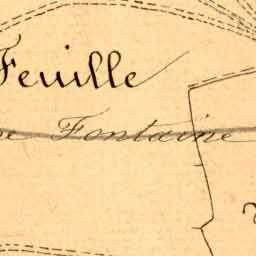 Feuille
Fontaine